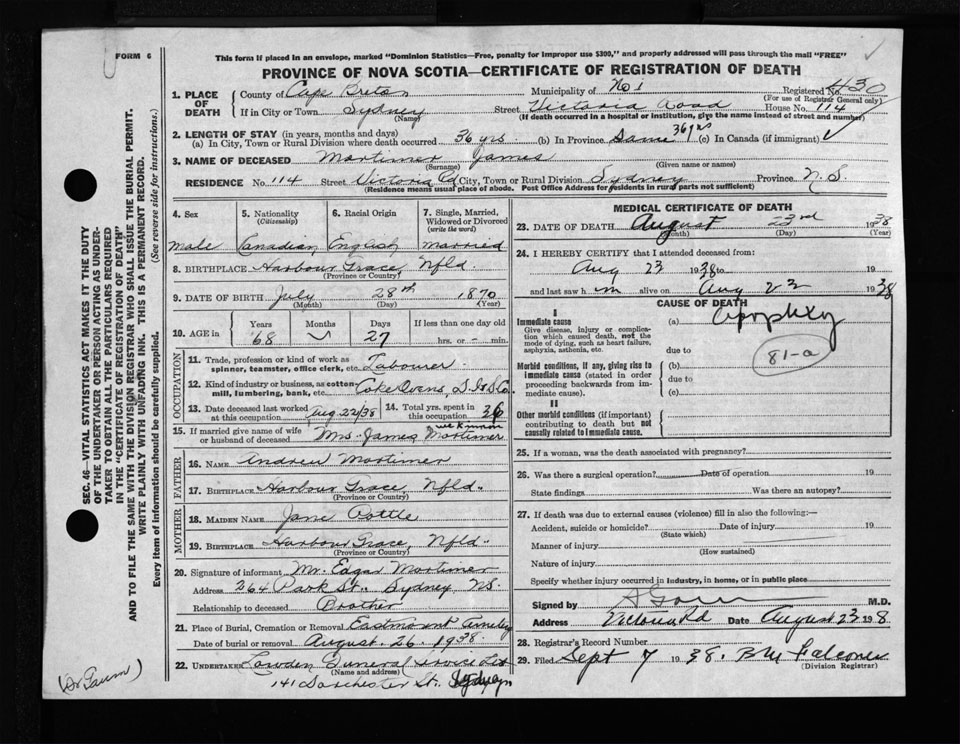 FORM 6
This form if placed in an envelope, marked "Dominion Statistics—Free, penalty for improper use $300," and properly addressed will pass through the mail "FREE"
PROVINCE OF NOVA SCOTIA—CERTIFICATE OF REGISTRATION OF DEATH
1. PLACE OF DEATH
County of Cape Breton Municipality of No 1 Registered No. 430
(For use of Registrar General only)
If in City or Town Sydney Street Victoria Road House No. 114
(Name) (If death occurred in a hospital or institution, give the name instead of street and number)
2. LENGTH OF STAY (in years, months and days)
(a) In City, Town or Rural Division where death occurred 36 yrs. (b) In Province Same 36 yrs (c) In Canada (if immigrant)
3. NAME OF DECEASED Mortimer James
(Surname) (Given name or names)
RESIDENCE No. 114 Street Victoria Rd City, Town or Rural Division Sydney Province N.S.
(Residence means usual place of abode. Post Office Address for residents in rural parts not sufficient)
4. Sex
male
5. Nationality
(Citizenship)
Canadian
6. Racial Origin
English
7. Single, Married, Widowed or Divorced
(write the word)
Married
8. BIRTHPLACE Harbour Grace, Nfld
(Province or Country)
9. DATE OF BIRTH July 28th 1870
(Month) (Day) (Year)
10. AGE in
Years Months Days If less than one day old
68 27 hrs. or - min.
OCCUPATION
11. Trade, profession or kind of work as spinner, teamster, office clerk, etc. Labourer
12. Kind of industry or business, as cotton mill, lumbering, bank, etc. Coke Ovens, D.I.&S.Co.
13. Date deceased last worked at this occupation Aug 22/38
14. Total yrs. spent in this occupation 36
15. If married give name of wife or husband of deceased Mrs. James Mortimer
FATHER
16. NAME Andrew Mortimer
17. BIRTHPLACE Harbour Grace, Nfld.
(Province or Country)
MOTHER
18. MAIDEN NAME Jane Pottle
19. BIRTHPLACE Harbour Grace, Nfld.
(Province or Country)
20. Signature of informant Mr. Edgar Mortimer
Address 264 Park St., Sydney NS.
Relationship to deceased Brother
21. Place of Burial, Cremation or Removal Eastmount Cemetery
Date of burial or removal August. 26. 1938.
22. UNDERTAKER Lowden Funeral Service Ltd
(Name and address)
141 Dorchester St. Sydney
MEDICAL CERTIFICATE OF DEATH
23. DATE OF DEATH August 23rd 1938
(Month) (Day) (Year)
24. I HEREBY CERTIFY that I attended deceased from:
Aug 23 1938 to 19
and last saw h m alive on Aug 23 1938
CAUSE OF DEATH
I
Immediate cause
Give disease, injury or complication which caused death, not the mode of dying, such as heart failure, asphyxia, asthenia, etc.
(a) Apoplexy
due to
81-a
Morbid conditions, if any, giving rise to immediate cause (stated in order proceeding backwards from immediate cause).
(b)
due to
(c)
II
Other morbid conditions (if important) contributing to death but not causally related to immediate cause.
25. If a woman, was the death associated with pregnancy?
26. Was there a surgical operation? Date of operation 19
State findings Was there an autopsy?
27. If death was due to external causes (violence) fill in also the following:—
Accident, suicide or homicide? Date of injury 19
(State which)
Manner of injury
(How sustained)
Nature of injury
Specify whether injury occurred in industry, in home, or in public place
Signed by M.D.
Address Victoria Rd Date August 23 1938
28. Registrar's Record Number
29. Filed Sept 7 1938. B M Falconer
(Division Registrar)
SEC. 46—VITAL STATISTICS ACT MAKES IT THE DUTY
OF THE UNDERTAKER OR PERSON ACTING AS UNDER-
TAKER TO OBTAIN ALL THE PARTICULARS REQUIRED
IN THE "CERTIFICATE OF REGISTRATION OF DEATH"
AND TO FILE THE SAME WITH THE DIVISION REGISTRAR WHO SHALL ISSUE THE BURIAL PERMIT.
WRITE PLAINLY WITH UNFADING INK. THIS IS A PERMANENT RECORD.
Every item of information should be carefully supplied. (See reverse side for instructions.)